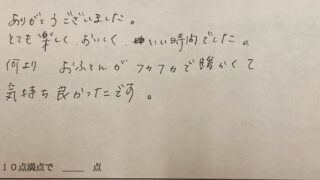 ありがとうございました。
とても楽しく、おいしく、いい時間でした。
何より おふとんが フカフカで暖かくて
気持ち良かったです。
10点満点で ____ 点